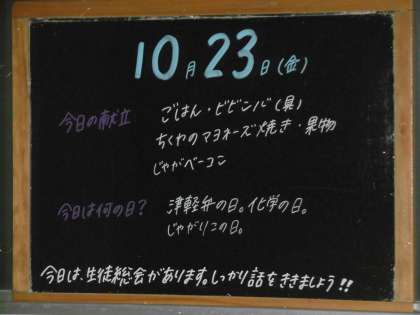 10月23日(金)
今日の献立
ごはん・ビビンバ(具)
ちくわのマヨネーズ焼き・果物
じゃがベーコン
今日は何の日?
津軽弁の日。化学の日。
じゃがりこの日。
今日は、生徒総会があります。しっかり話をききましょう!!